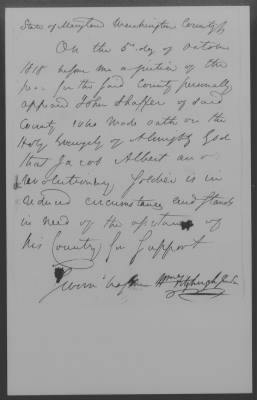 State of Maryland Washington County
On the 5th day of October
1818 before me a justice of the
peace for the said County personally
appeared John Shaffer of said
County who made oath on the
Holy Evangely of Almighty God
that Jacob Albert an a
revolutionary Soldier is in
reduced circumstances and stands
in need of the assistance of
his Country for Support
Sworn before Wm Fitzhugh